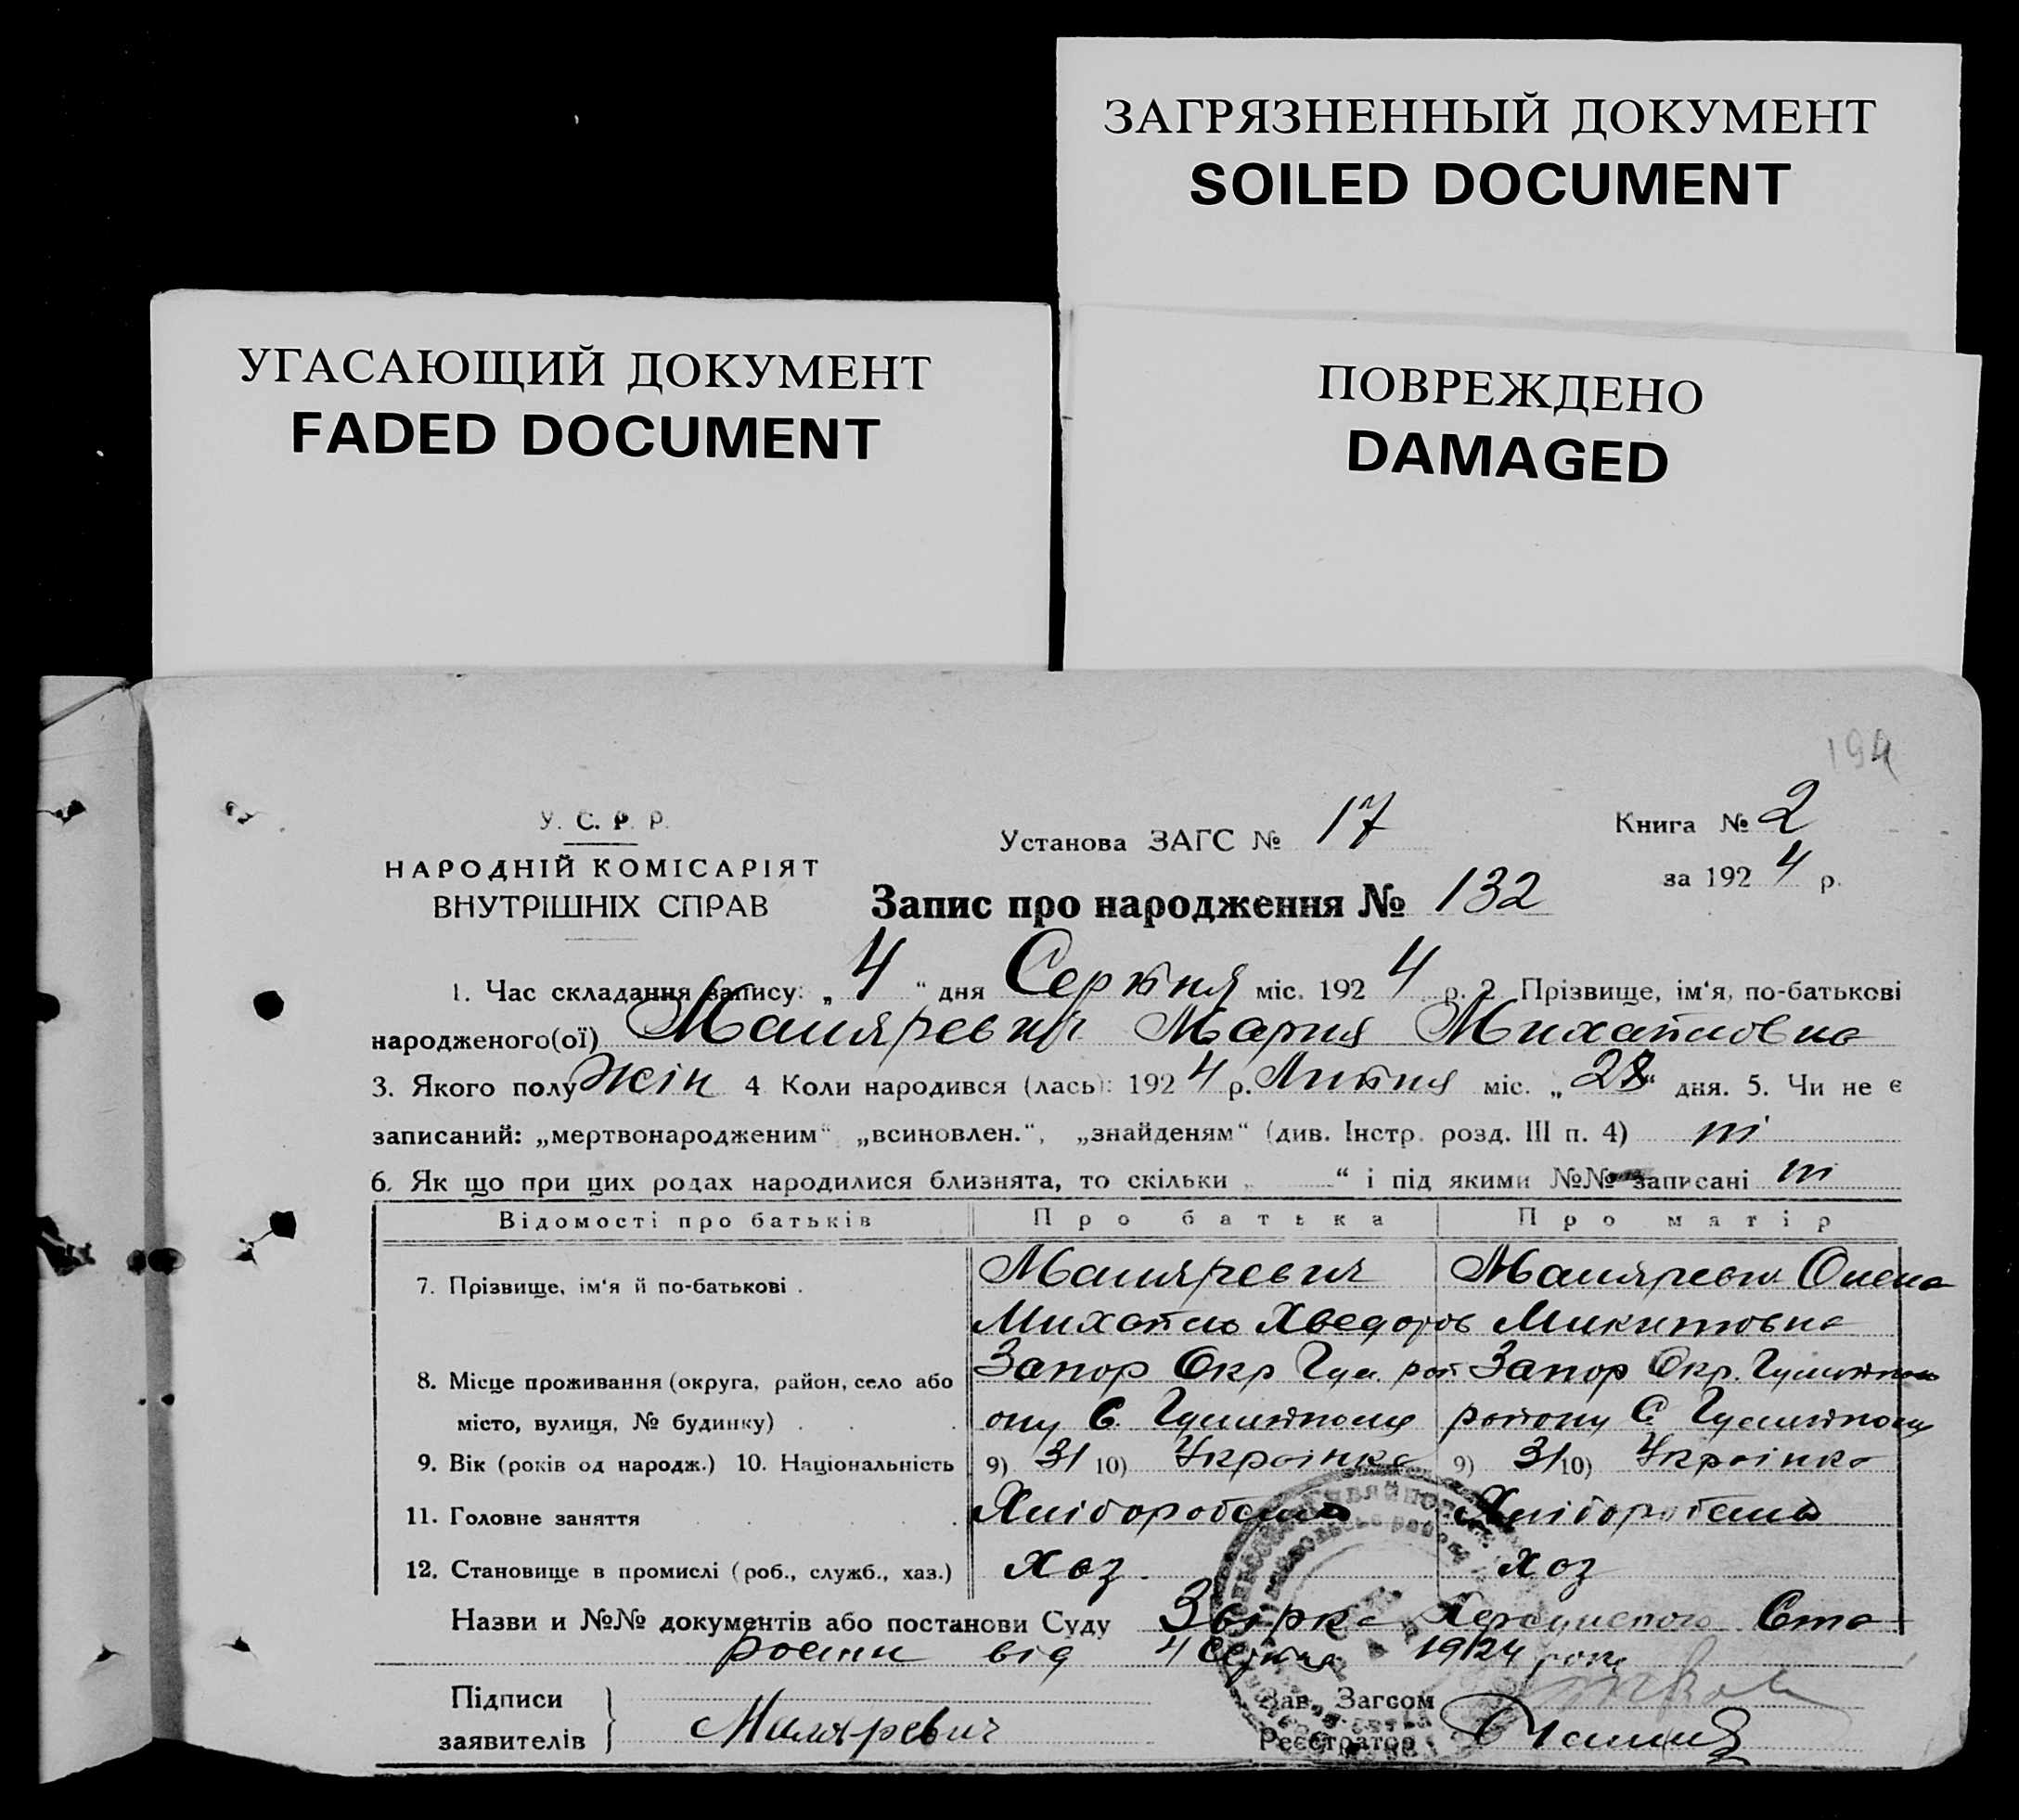 ЗАГРЯЗНЕННЫЙ ДОКУМЕНТ
SOILED DOCUMENT
УГАСАЮЩИЙ ДОКУМЕНТ
FADED DOCUMENT
ПОВРЕЖДЕНО
DAMAGED
194
У. С. Р. Р.
НАРОДНІЙ КОМІСАРІЯТ
ВНУТРІШНІХ СПРАВ
Установа ЗАГС № 17
Книга № 2
за 1924 р.
Запис про народження № 132
1. Час складання запису: „4“ дня Серпня міс. 1924 р. 2 Прізвище, ім‘я, по-батькові
народженого(ої) Маляревич Мария Михайловна
3. Якого полу жін 4 Коли народився (лась): 1924 р. Липня міс. „28“ дня. 5. Чи не є
записаний: „мертвонародженим“ „всиновлен.“, „знайденям“ (див. Інстр. розд. III п. 4) ні
6. Як що при цих родах народилися близнята, то скільки „ “ і під якими №№ записані ні
Відомості про батьків Про батька Про матір
7. Прізвище, ім‘я й по-батькові . Маляревич Маляревич Олена
Михайло Хведоров Микитовна
8. Місце проживання (округа, район, село або Запор Окр Гул. рай Запор Окр.
місто, вулиця, № будинку) . . . ону С. Гуляйполе району С Гуляйполе
9. Вік (років од народж.) 10. Національність 9) 31 10) Українка 9) 31 10) Українка
11. Головне заняття . . . . . Хліборобство Хліборобство
12. Становище в промислі (роб., служб., хаз.) хоз. хоз
Назви и №№ документів або постанови Суду Ста
рости від 4 Серпня 1924 року
Підписи
заявителів } Маляревич
Зав. Загсом
Реєстратор